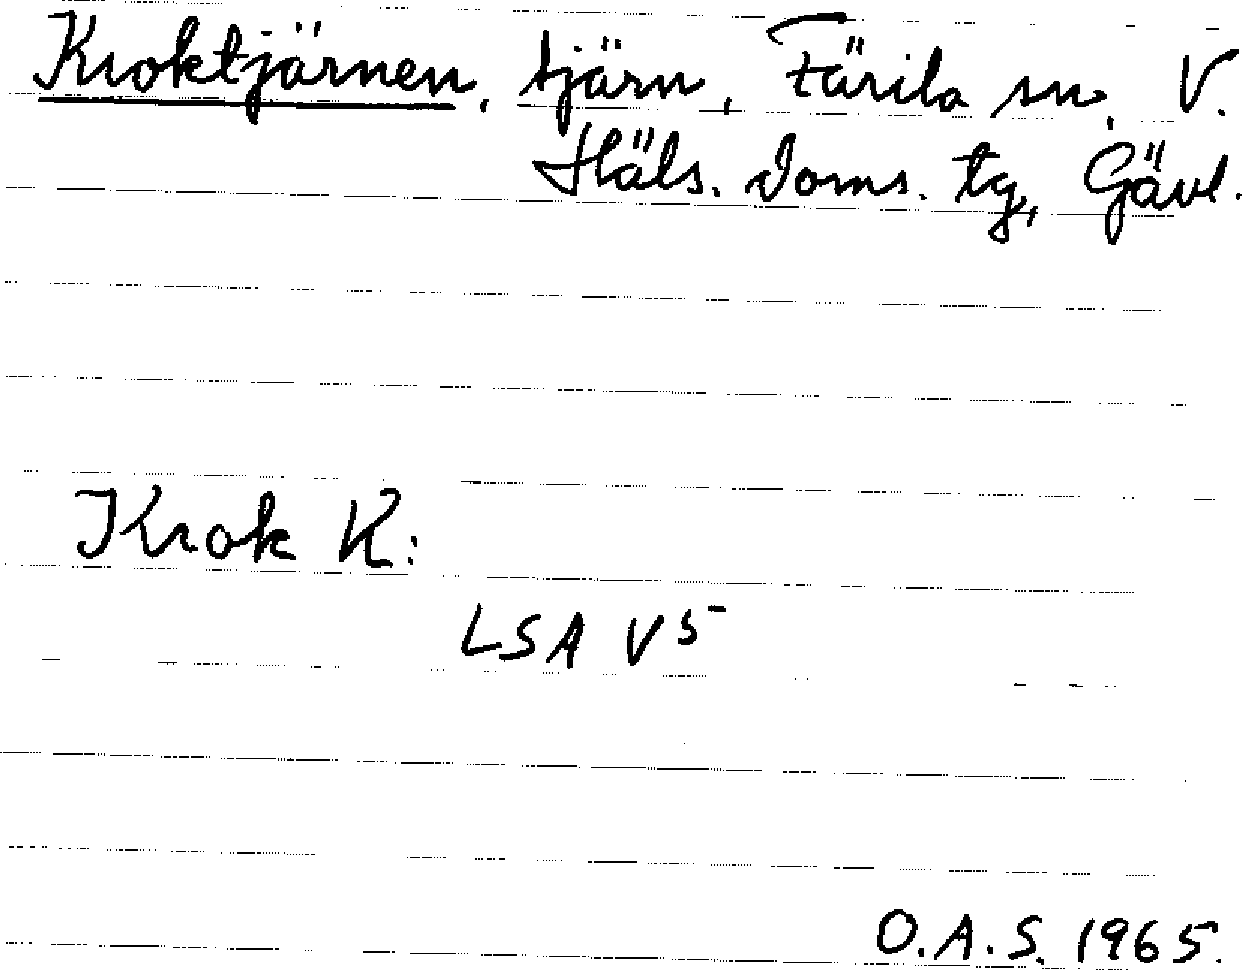 Kroktjärnen, tjärn, Färila sn, V.
Häls. doms. tg, Gävl.
Krok K:
LSA V5
O.A.S. 1965.